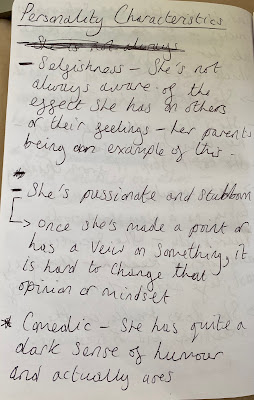 Personality Characteristics
She is not always
- Selfishness - She's not
always aware of the
effect she has on others
or their feelings - her parents
being an example of this -
*
- She's passionate and stubborn
↳ once she's made a point or
has a veiw on something, it
is hard to change that
opinion or mindset
* Comedic - She has quite a
dark sense of humour
and actually uses